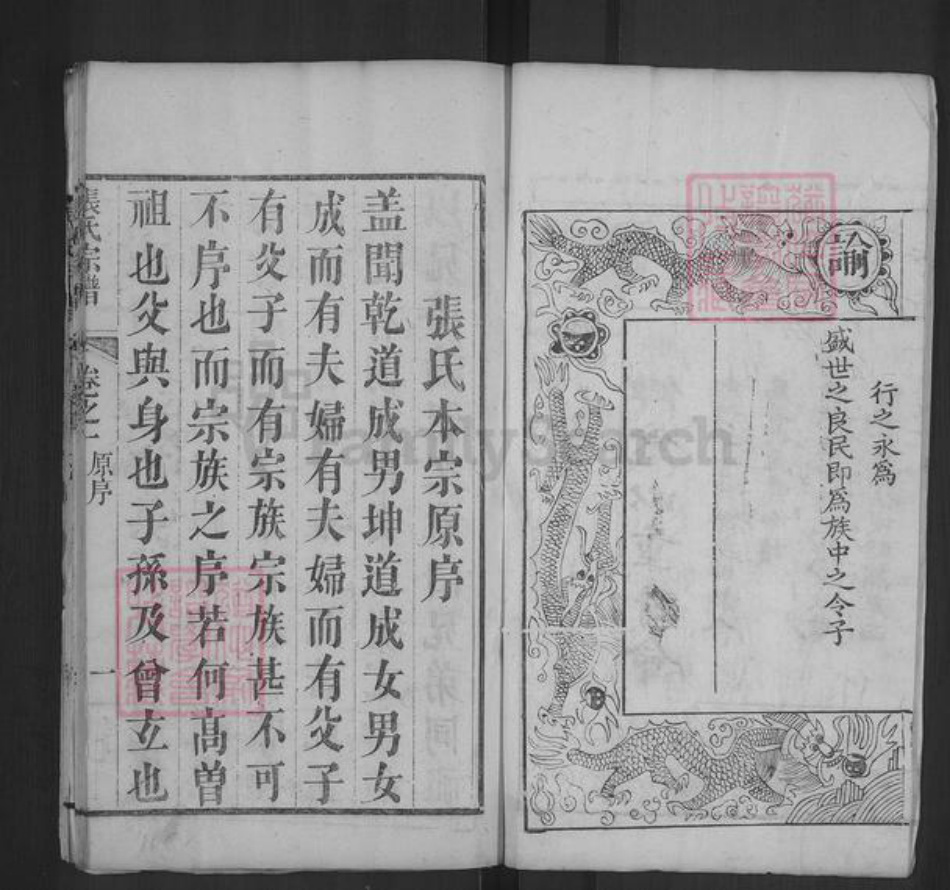 諭
行之永為
盛世之良民即為族中之令子
張氏本宗原序
盖聞乾道成男坤道成女男女
成而有夫婦有夫婦而有父子
有父子而有宗族宗族甚不可
不序也而宗族之序若何高曽
祖也父與身也子孫及曾玄也
張氏宗譜
卷之一
原序
一
FamilySearch